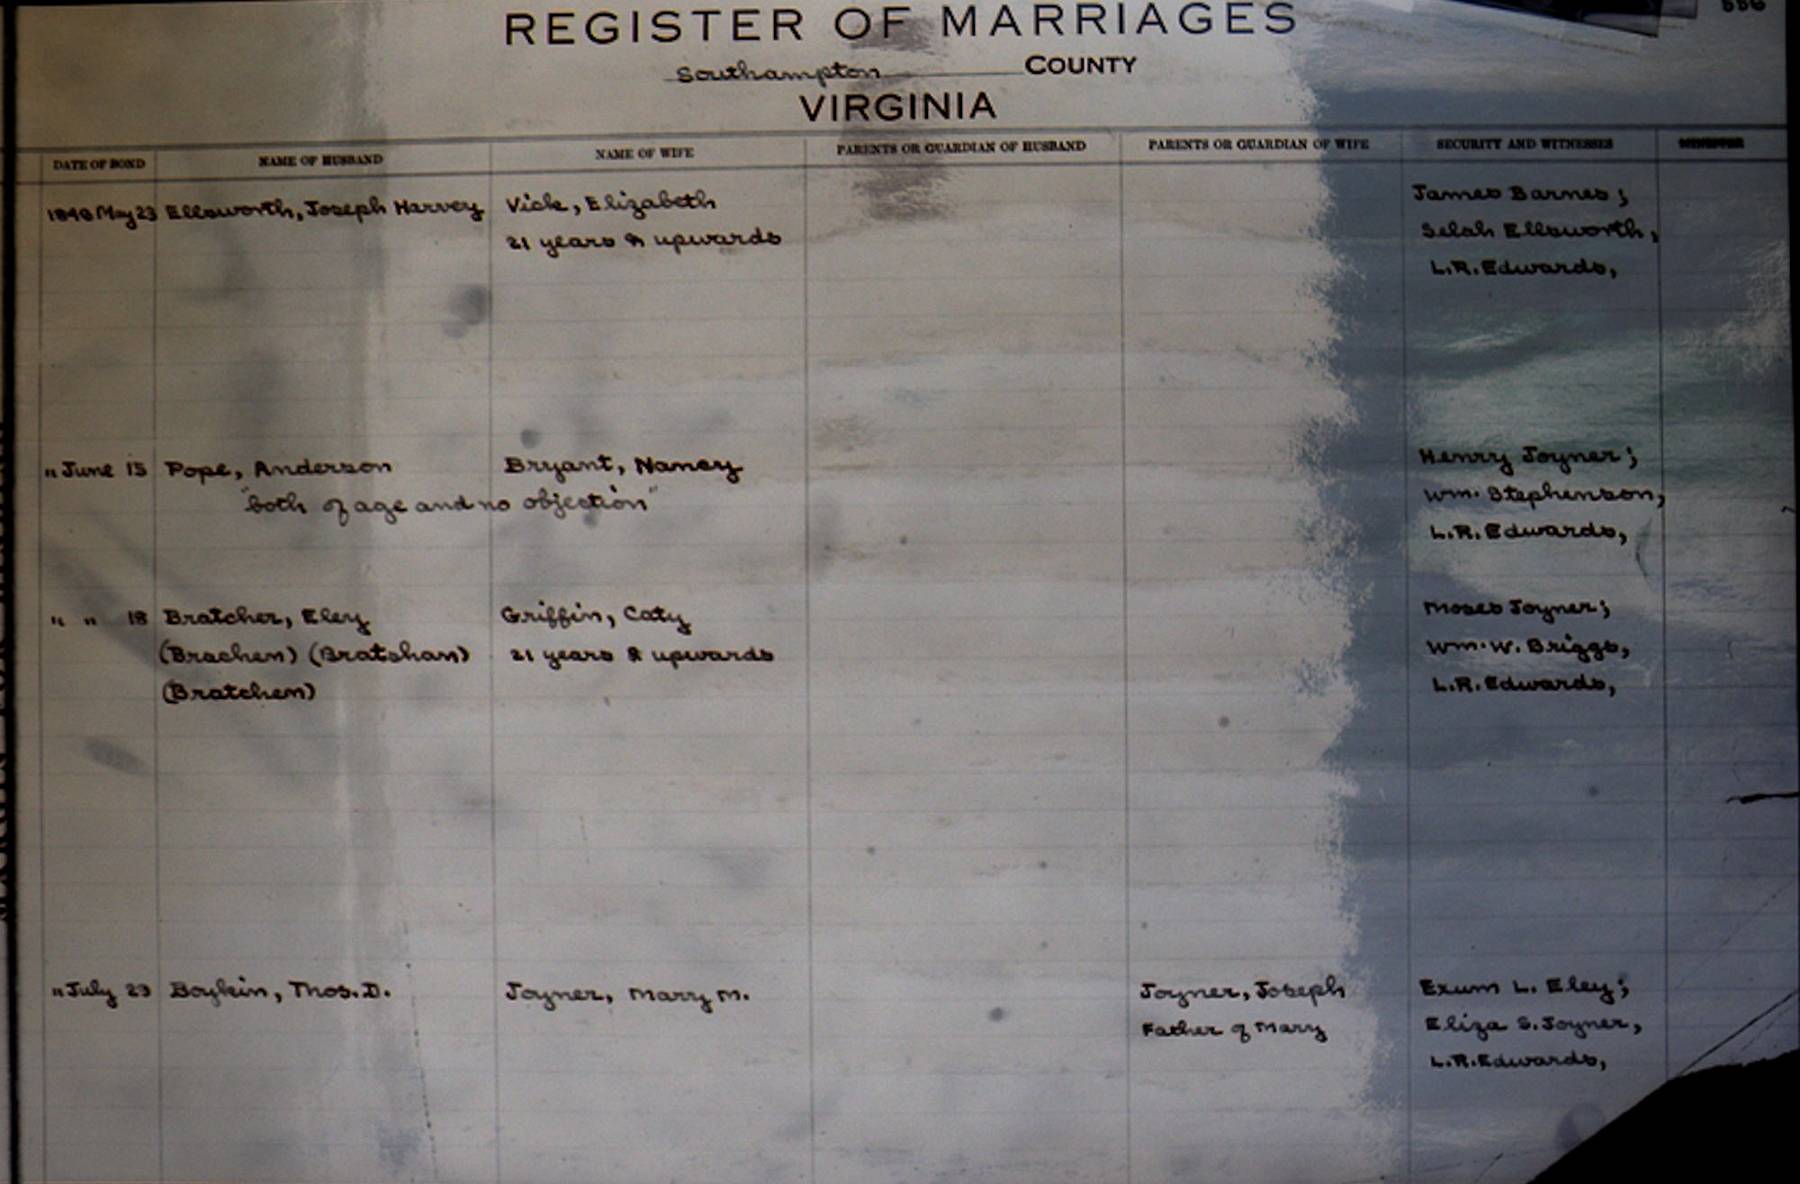 REGISTER OF MARRIAGES
Southampton COUNTY
VIRGINIA
DATE OF BOND NAME OF HUSBAND NAME OF WIFE PARENTS OR GUARDIAN OF HUSBAND PARENTS OR GUARDIAN OF WIFE SECURITY AND WITNESSES
May 23 Ellsworth, Joseph Harvey Vick, Elizabeth James Barnes;
21 years & upwards Selah Ellsworth,
L.R. Edwards,
" June 15 Pope, Anderson Bryant, Nancy Henry Joyner;
"both of age and no objection" Wm. Stephenson,
L.R. Edwards,
" " 18 Bratcher, Eley Griffin, Caty Moses Joyner;
(Brachen) (Bratshan) 21 years & upwards Wm. W. Briggs,
(Bratchen) L.R. Edwards,
" July 23 Boykin, Thos. D. Joyner, Mary M. Joyner, Joseph Exum L. Eley;
Father of Mary Eliza S. Joyner,
L.R. Edwards,